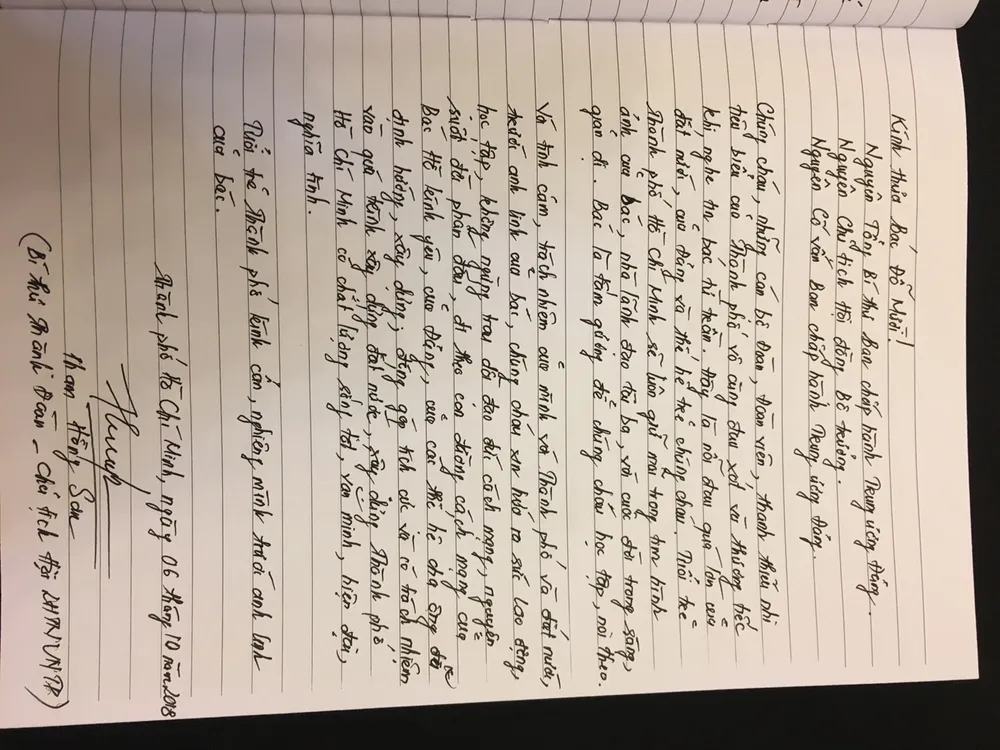 Kính thưa Bác Đỗ Mười!
Nguyên Tổng Bí thư Ban chấp hành Trung ương Đảng.
Nguyên Chủ tịch Hội đồng Bộ trưởng.
Nguyên Cố vấn Ban chấp hành Trung ương Đảng.
Chúng cháu, những cán bộ Đoàn, đoàn viên, thanh thiếu nhi
tiêu biểu của Thành phố vô cùng đau xót và thương tiếc
khi nghe tin bác từ trần. Đây là nỗi đau quá lớn của
đất nước, của đảng và thế hệ trẻ chúng cháu. Tuổi trẻ
Thành phố Hồ Chí Minh sẽ luôn ghi mãi trong tim hình
ảnh của bác, nhà lãnh đạo tài ba, với cuộc đời trong sáng,
giản dị. Bác là tấm gương để chúng cháu học tập, noi theo.
Với tình cảm, trách nhiệm của mình với Thành phố và đất nước,
trước anh linh của bác, chúng cháu xin hứa ra sức lao động,
học tập, không ngừng trau dồi đạo đức cách mạng, nguyện
suốt đời phấn đấu, đi theo con đường cách mạng của
Bác Hồ kính yêu, của Đảng, của các thế hệ cha ông đã
định hướng, xây dựng; đóng góp tích cực và có trách nhiệm
vào quá trình xây dựng đất nước, xây dựng Thành phố
Hồ Chí Minh có chất lượng sống tốt, văn minh, hiện đại,
nghĩa tình.
Tuổi trẻ Thành phố kính cẩn, nghiêng mình trước anh linh
của bác.
Thành phố Hồ Chí Minh, ngày 06 tháng 10 năm 2018
Phạm Hồng Sơn
(Bí thư Thành Đoàn - Chủ tịch Hội LHTNVNTP)